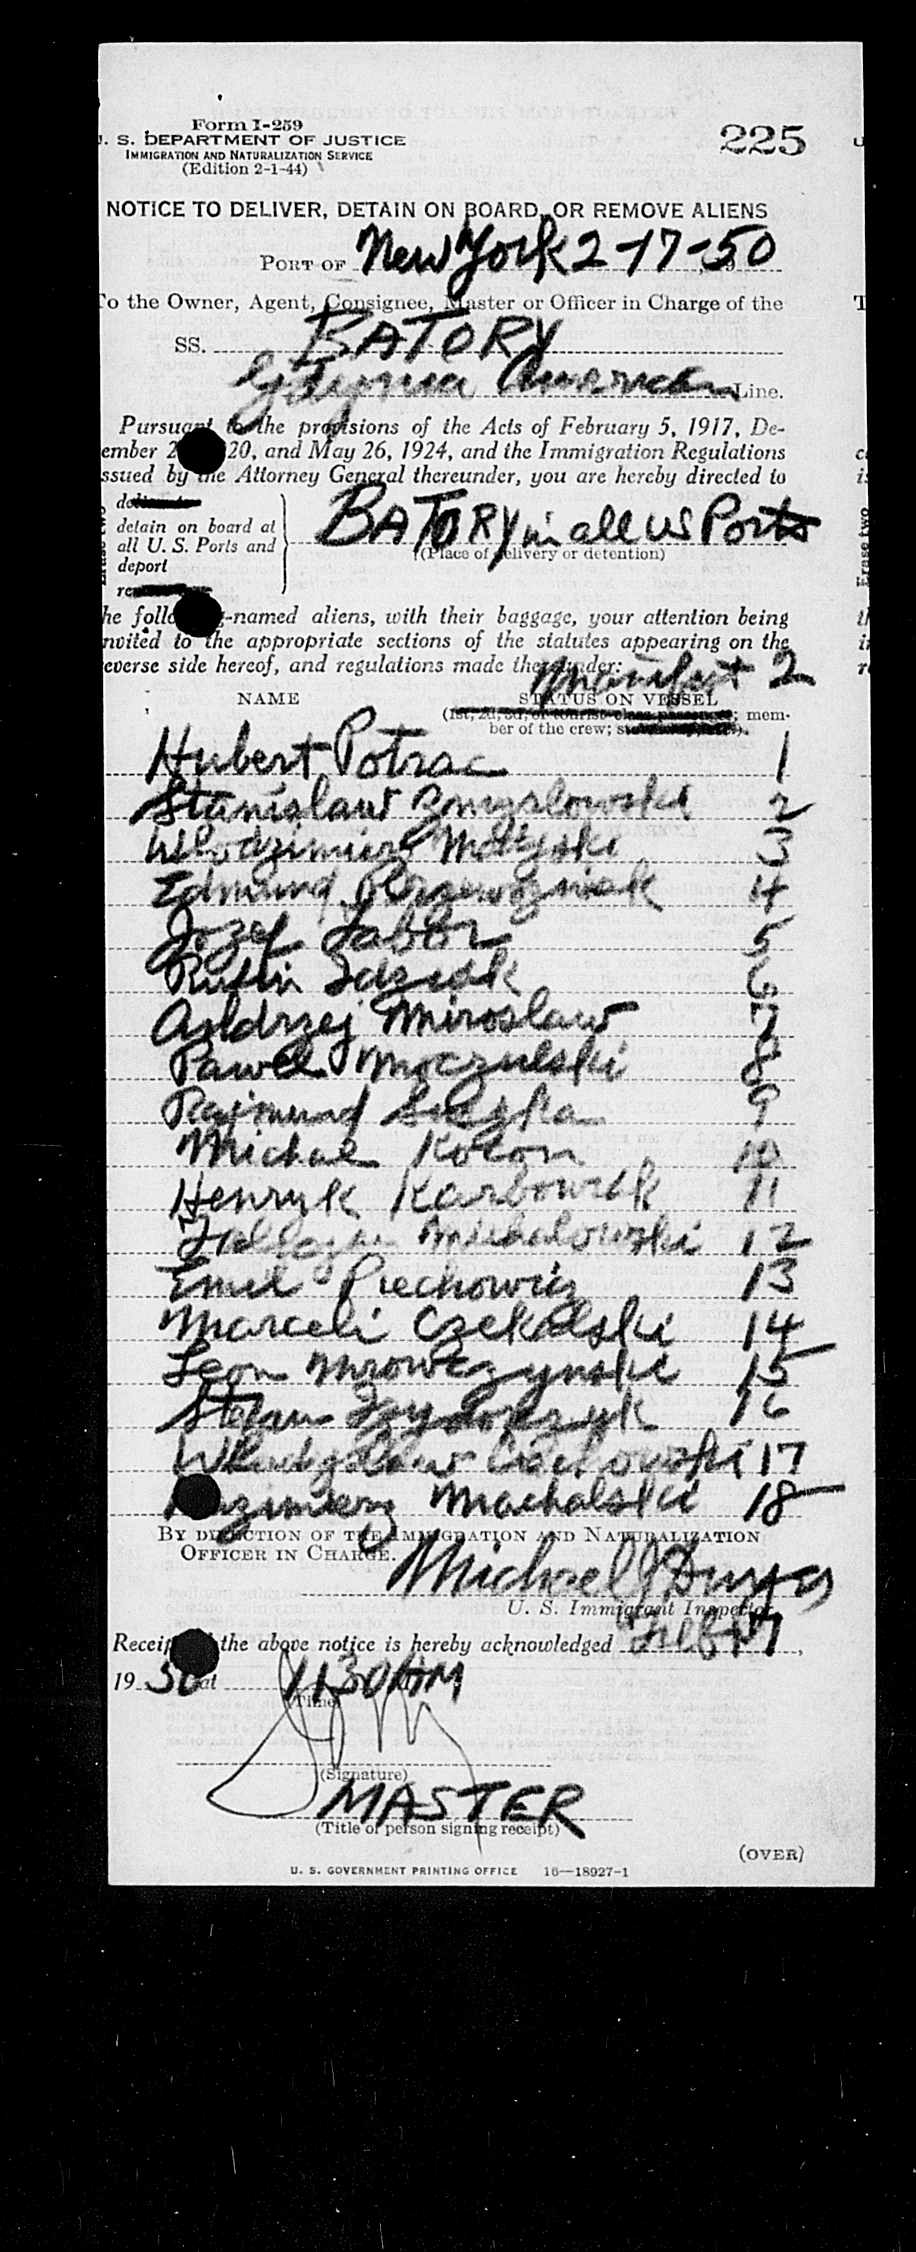 Form I-259
U. S. DEPARTMENT OF JUSTICE
IMMIGRATION AND NATURALIZATION SERVICE
(Edition 2-1-44)
225
NOTICE TO DELIVER, DETAIN ON BOARD, OR REMOVE ALIENS
PORT OF New York 2-17-50
To the Owner, Agent, Consignee, Master or Officer in Charge of the
SS. BATORY
Gdynia American Line.
Pursuant to the provisions of the Acts of February 5, 1917, De-
ember 2 20, and May 26, 1924, and the Immigration Regulations
ssued by the Attorney General thereunder, you are hereby directed to
detain on board at
all U. S. Ports and
deport
BATORY in all US Ports
(Place of delivery or detention)
he follo -named aliens, with their baggage, your attention being
nvited to the appropriate sections of the statutes appearing on the
everse side hereof, and regulations made thereunder:
Manifest 2
NAME STATUS ON VESSEL
(1st, 2d, 3d, or tourist class passenger; mem-
ber of the crew;
Hubert Potrac 1
Stanislaw 2
Wlodzimierz 3
Edmund 4
Jozef Tabor 5
Rufin Idziak 6
Andrzej Miroslaw 7
Pawel Moczulski 8
Rajmund 9
Michal Koton 10
Henryk Karbowiak 11
Michalowski 12
Emil Piechowicz 13
Marceli Czekalski 14
Leon Mrowczynski 15
Stefan 16
Wladyslaw Czechowski 17
Kazimierz Machalski 18
BY DIRECTION OF THE IMMIGRATION AND NATURALIZATION
OFFICER IN CHARGE.
Michael J
U. S. Immigrant Inspector
Receip the above notice is hereby acknowledged Feb 17,
19 50 at 1130 AM
(Time)
(Signature)
MASTER
(Title of person signing receipt)
(OVER)
U. S. GOVERNMENT PRINTING OFFICE 16—18927-1